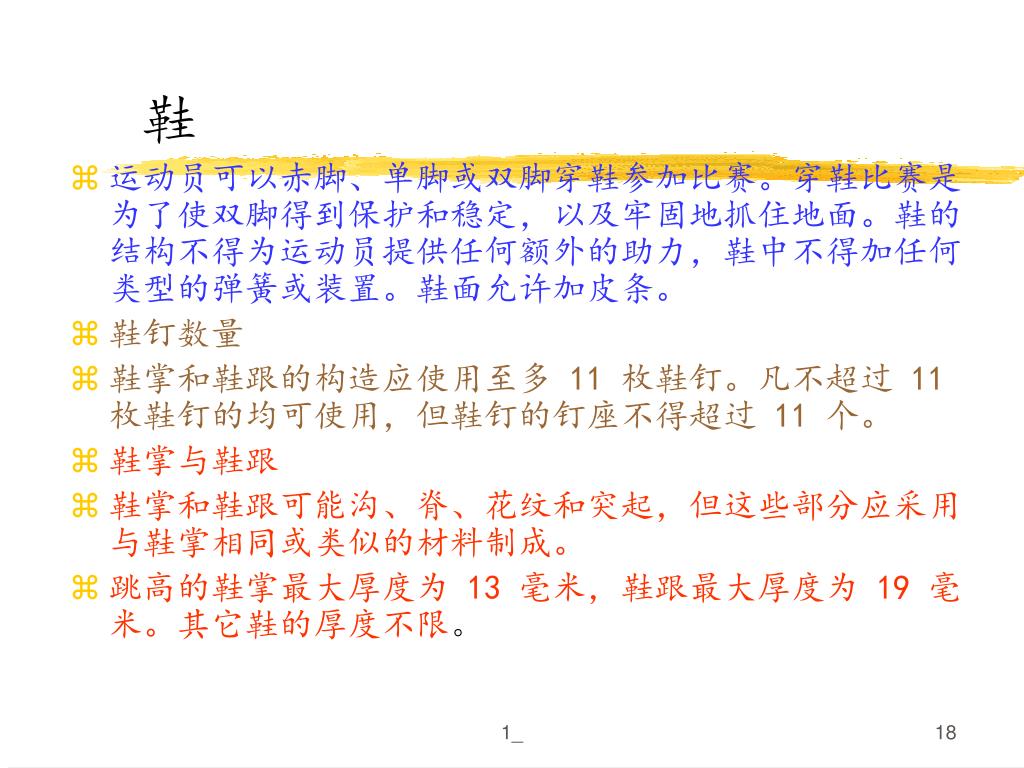 鞋
⌘ 运动员可以赤脚、单脚或双脚穿鞋参加比赛。穿鞋比赛是
为了使双脚得到保护和稳定，以及牢固地抓住地面。鞋的
结构不得为运动员提供任何额外的助力，鞋中不得加任何
类型的弹簧或装置。鞋面允许加皮条。
⌘ 鞋钉数量
⌘ 鞋掌和鞋跟的构造应使用至多 11 枚鞋钉。凡不超过 11
枚鞋钉的均可使用，但鞋钉的钉座不得超过 11 个。
⌘ 鞋掌与鞋跟
⌘ 鞋掌和鞋跟可能沟、脊、花纹和突起，但这些部分应采用
与鞋掌相同或类似的材料制成。
⌘ 跳高的鞋掌最大厚度为 13 毫米，鞋跟最大厚度为 19 毫
米。其它鞋的厚度不限。
1_
18